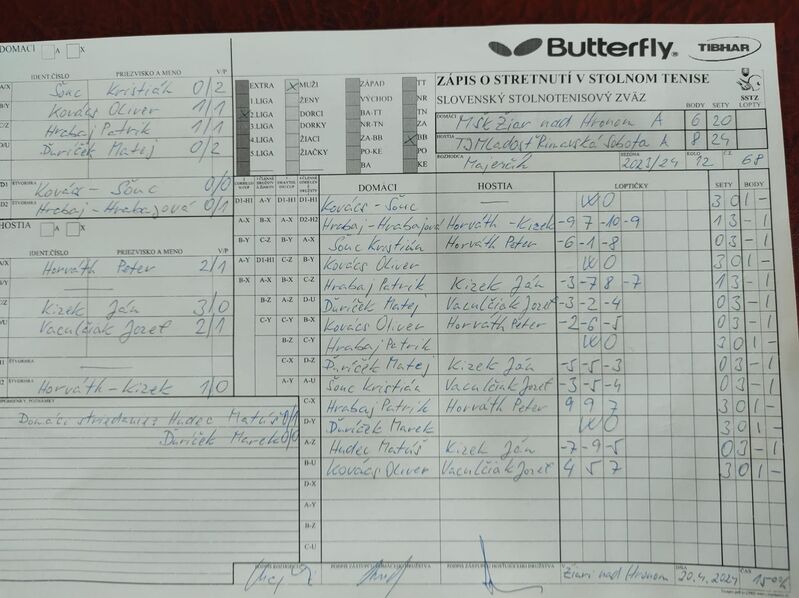 Butterfly® TIBHAR
DOMÁCI A X
ZÁPIS O STRETNUTÍ V STOLNOM TENISE
SLOVENSKÝ STOLNOTENISOVÝ ZVÄZ SSTZ
IDENT.ČÍSLO PRIEZVISKO A MENO V/P
A/X Šouc Kristián 0/2
B/Y Kovács Oliver 1/1
C/Z Hrabaj Patrik 1/1
D/U Ďuríček Matej 0/2
D1 Kovács - Šouc 0/0
D2 Hrabaj - Hrabajová 0/1
EXTRA X MUŽI ZÁPAD TT
1.LIGA ŽENY VÝCHOD NR
X 2.LIGA DORCI TT-TN ZA
3.LIGA DORKY NR-TN X BB
4.LIGA ŽIACI ZA-BB PO
5.LIGA ŽIAČKY PO-KE KE
BA
BODY SETY LOPTY
DOMÁCI MŠK Žiar nad Hronom A 6 20
HOSTIA TJ Mladosť Rimavská Sobota A 8 24
ROZHODCA Majerčík SEZÓNA 2023/24 KOLO 12 Č.Z. 68
HOSTIA A X
IDENT.ČÍSLO PRIEZVISKO A MENO V/P
A/X Horváth Peter 2/1
Kizek Ján 3/0
D/U Vaculčiak Jozef 2/1
ŠTVORHRA
ŠTVORHRA Horváth - Kizek 1/0
Domáci striedanie: Hudec Matúš 0/1
Ďuríček Marek 0/0
DOMÁCI HOSTIA LOPTIČKY SETY BODY
D1-H1 A-Y D1-H1 D1-H1 Kovács - Šouc — WO 3 0 1 -
A-X B-X A-X D2-H2 Hrabaj-Hrabajová Horváth - Kizek -9 7 -10 -9 1 3 - 1
B-Y C-Z B-Y A-X Šouc Kristián Horváth Peter -6 -1 -8 0 3 - 1
A-Y D1-H1 C-Z B-Y Kovács Oliver WO 3 0 1 -
B-X A-X B-X C-Z Hrabaj Patrik Kizek Ján -3 -7 8 -7 1 3 - 1
B-Z A-Z D-U Ďuríček Matej Vaculčiak Jozef -3 -2 -4 0 3 - 1
C-Y C-Y B-X Kovács Oliver Horváth Peter -2 -6 -5 0 3 - 1
B-Z C-Y Hrabaj Patrik WO 3 0 1 -
C-X D-Z Ďuríček Matej Kizek Ján -5 -5 -3 0 3 - 1
A-Y A-U Šouc Kristián Vaculčiak Jozef -3 -5 -4 0 3 - 1
C-X Hrabaj Patrik Horváth Peter 9 9 7 3 0 1 -
D-Y Ďuríček Marek WO 3 0 1 -
A-Z Hudec Matúš Kizek Ján -7 -9 -5 0 3 - 1
B-U Kovács Oliver Vaculčiak Jozef 4 5 7 3 0 1 -
D-X
A-Y
B-Z
C-U
PODPIS ROZHODCU PODPIS ZÁSTUPCU DOMÁCEHO DRUŽSTVA PODPIS ZÁSTUPCU HOSŤUJÚCEHO DRUŽSTVA V DŇA ČAS
Žiari nad Hronom 20.4.2024